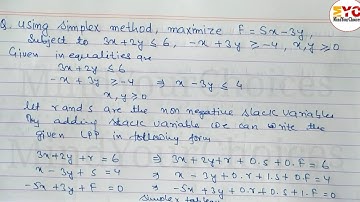 Q. Using simplex method, maximize F = 5x - 3y,
Subject to 3x + 2y ≤ 6, -x + 3y ≥ -4, x, y ≥ 0
Given inequalities are
3x + 2y ≤ 6
-x + 3y ≥ -4 ⇒ x - 3y ≤ 4
x, y ≥ 0
let r and s are the non negative slack variables
By adding slack variable we can write the
given LPP in following form
3x + 2y + r = 6 ⇒ 3x + 2y + r + 0.s + 0.F = 6
x - 3y + s = 4 ⇒ x - 3y + 0.r + 1.s + 0.F = 4
-5x + 3y + F = 0 ⇒ -5x + 3y + 0.r + 0.s + 1.F = 0